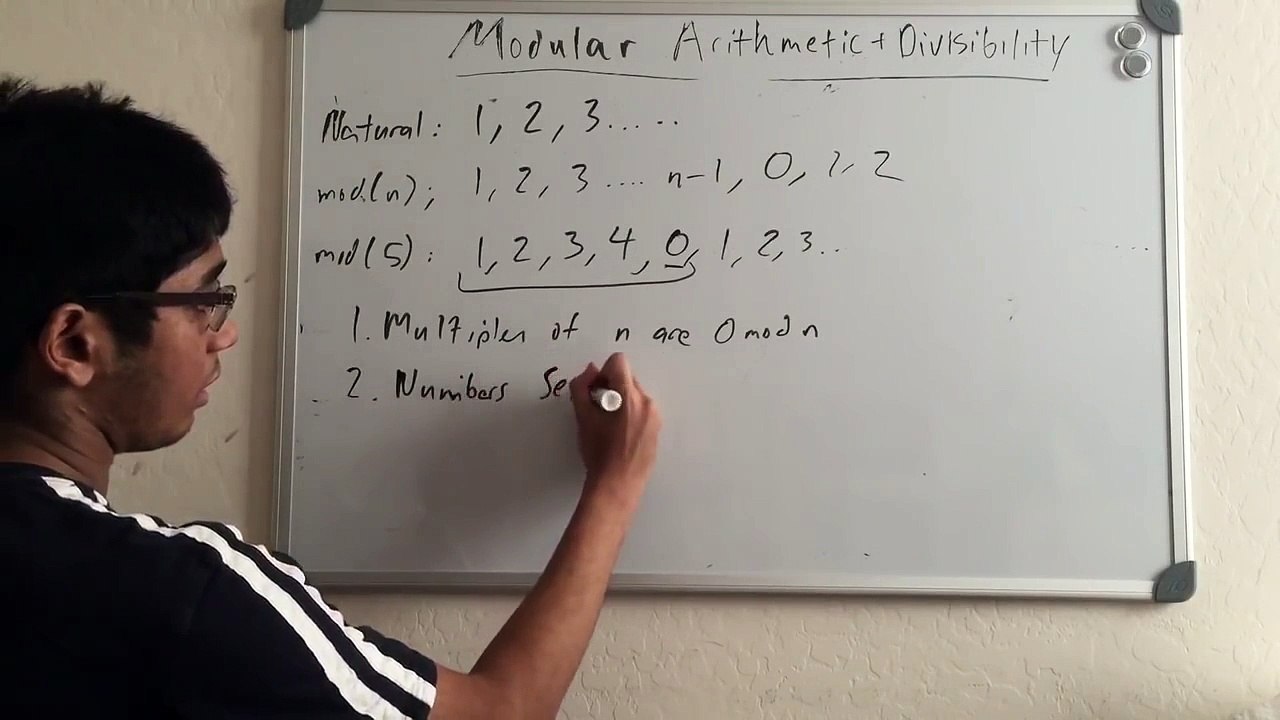 Modular Arithmetic + Divisibility
Natural: 1, 2, 3.....
mod(n); 1, 2, 3 .... n-1, 0, 1, 2
mod(5): 1, 2, 3, 4, 0, 1, 2, 3..
1. Multiples of n are 0 mod n
2. Numbers Se